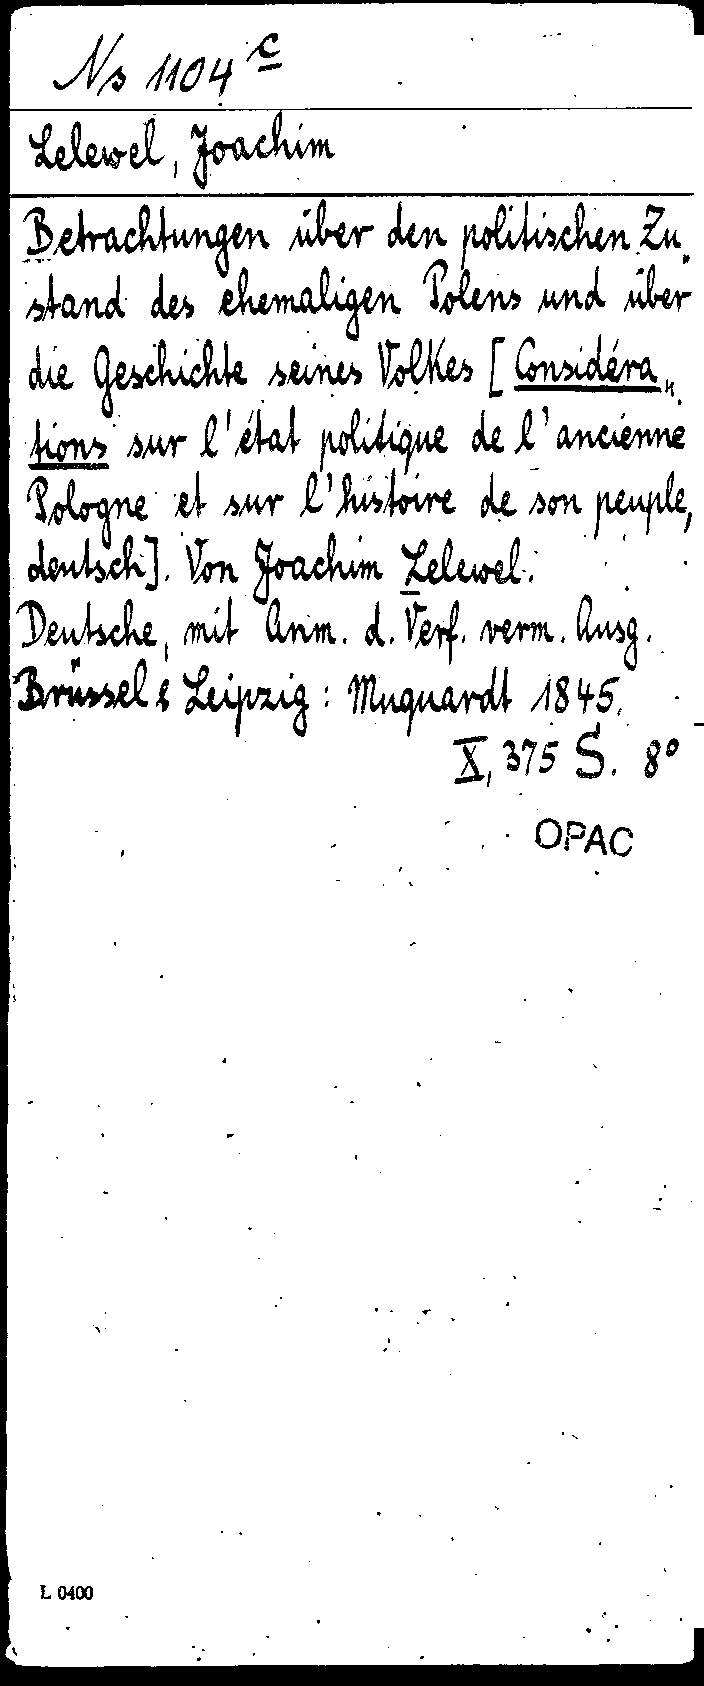 Ns 1104 c
Lelewel, Joachim
Betrachtungen über den politischen Zu„
stand des ehemaligen Polens und über
die Geschichte seines Volkes [Considéra„
tions sur l'état politique de l'ancienne
Pologne et sur l'histoire de son peuple,
deutsch]. Von Joachim Lelewel.
Deutsche, mit Anm. d. Verf. verm. Ausg.
Brüssel & Leipzig: Muquardt 1845.
X, 375 S. 8°
OPAC
L 0400